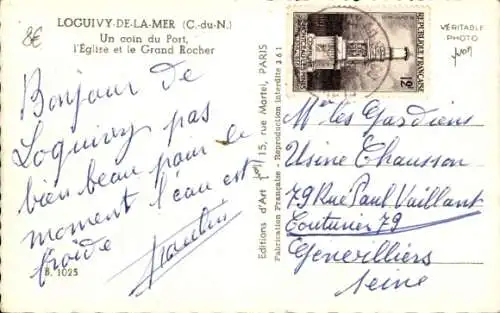 8€
LOGUIVY-DE-LA-MER (C.-du-N.)
Un coin du Port,
l'Église et le Grand Rocher
Bonjour de
Loguivy pas
bien beau pour le
moment l'eau est
froide
B. 1025
Editions d'Art yvon 15, rue Martel, PARIS
Fabrication Française - Reproduction interdite 361
REPUBLIQUE FRANÇAISE
12F
VÉRITABLE
PHOTO
yvon
Mr les Gardiens
Usine Chausson
79 Rue Paul Vaillant
Couturier 79
Genevilliers
Seine